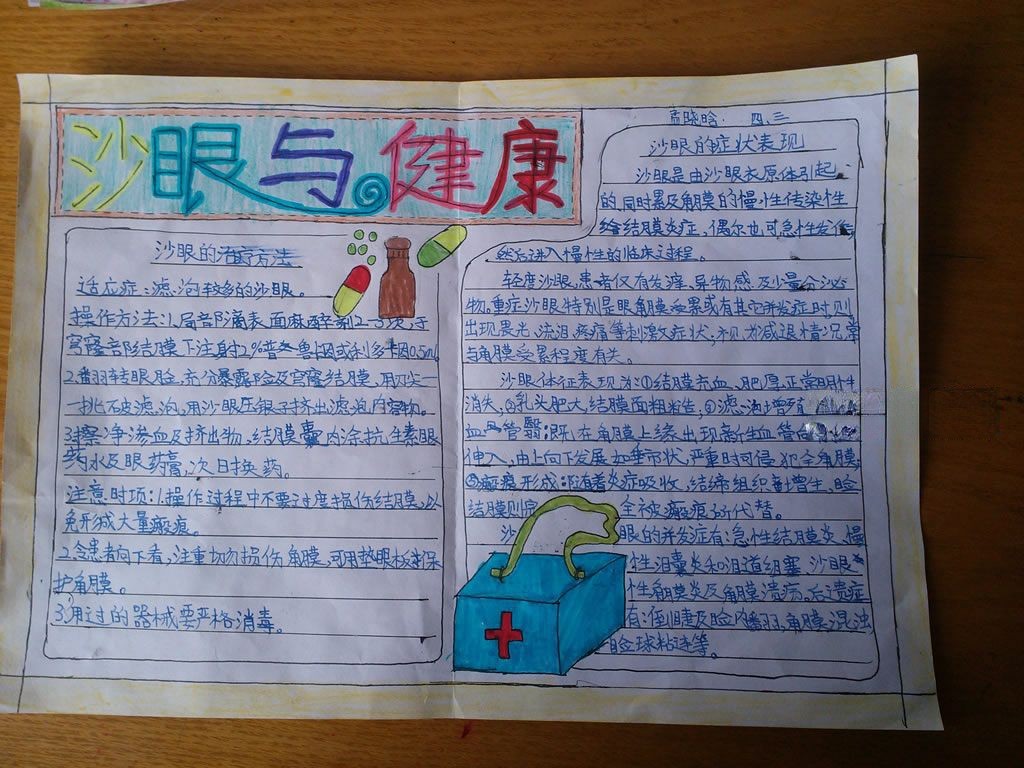 沙眼与健康
沙眼的治疗方法
适应症:滤泡较多的沙眼。
操作方法:1.局部滴表面麻醉剂2-3次,于
穹窿部结膜下注射2%普鲁卡因或利多卡因0.5ml
2.翻转眼睑,充分暴露睑及穹窿结膜,用尖一
一挑破滤泡,用沙眼压镊子挤出滤泡内容物。
3.擦净渗血及挤出物,结膜囊内涂抗生素眼
药水及眼药膏,次日换药。
注意时项:1.操作过程中不要过度损伤结膜,以
免形成大量瘢痕。
2.令患者向下看,注重切勿损伤角膜,可用垫眼板斜保
护角膜。
3.用过的器械要严格消毒。
晓晗. 四.三
沙眼的症状表现
沙眼是由沙眼衣原体引起
的同时累及角膜的慢性传染性
结膜炎症,偶尔也可急性发作,
然后进入慢性的临床过程。
轻度沙眼,患者仅有发痒、异物感及少量分泌
物。重症沙眼特别是眼角膜受累或有其它并发症时,则
出现畏光、流泪、疼痛等刺激症状;视力减退情况常
与角膜受累程度有关。
沙眼体征表现为:①结膜充血、肥厚、正常明性
消失,②乳头肥大,结膜面粗糙;③滤泡增
血管翳:既在角膜上缘出现新生血管
伸入,由上向下发展如垂帘状,严重时可侵犯全角膜,
⑤瘢痕形成:随着炎症吸收,结缔组织增生,睑
结膜则完全被瘢痕所代替。
沙眼的并发症有:急性结膜炎、慢
性泪囊炎和泪道组塞、沙眼
性角膜炎及角膜溃疡。后遗症
有:倒睫及睑内翻,角膜混浊,
睑球粘连等。